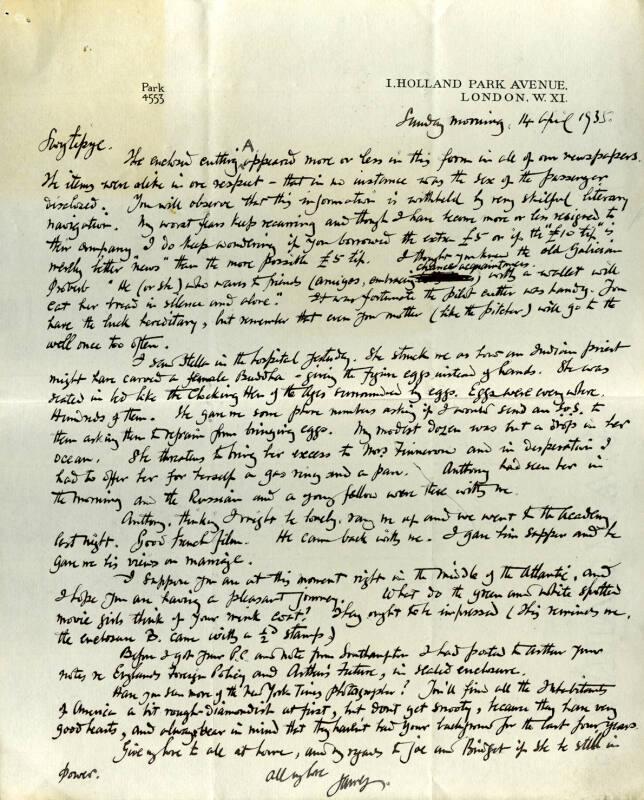 Park
4553
1. HOLLAND PARK AVENUE.
LONDON. W. XI.
Sunday morning, 14 April 1935.
The enclosed cutting A appeared more or less in this form in all of our newspapers.
The items were alike in one respect – that in no instance was the sex of the passenger
disclosed. You will observe that this information is withheld by very skilful literary
navigation. My worst fears keep recurring and though I have become more or less resigned to
their company I do keep wondering if you borrowed the extra £5 or if the "£10 tip" is
merely better "news" than the more possible £5 tip. I thought you knew the old Galician
chance acquaintances
proverb "He (or she) who waves to friends (amigos, embracing) with a wallet will
eat her bread in silence and alone." It was fortunate the pilot cutter was handy. You
have the luck hereditary, but remember that even your mother (like the pitcher) will go to the
well once too often.
I saw Stella in the hospital yesterday. She struck me as how an Indian priest
might have carved a female Buddha – giving the figure eggs instead of hands. She was
seated in bed like the Clocking Hen of the Ages surrounded by eggs. Eggs were everywhere.
Hundreds of them. She gave me some phone numbers asking if I would send an S.O.S. to
them asking them to refrain from bringing eggs. My modest dozen was but a drop in her
ocean. She threatens to bring her excess to Mrs and in desperation I
had to offer her for herself a gas ring and a pan. Anthony had seen her in
the morning and the Russian and a young fellow were there with me.
Anthony, thinking I might be lonely, rang me up and we went to the Academy
last night. Good French film. He came back with me. I gave him supper and he
gave me his views on marriage.
I suppose you are at this moment right in the middle of the Atlantic, and
I hope you are having a pleasant journey. What do the green and white spotted
movie girls think of your mink coat? They ought to be impressed (This reminds me,
the enclosure B. came with a ½d stamp.)
Before I got your P.C. and note from Southampton I had posted to Arthur your
notes re England's Foreign Policy and Arthur's Future, in sealed enclosure.
Have you seen more of the New York Times photographer? You'll find all the Inhabitants
of America a bit rough-diamondish at first, but don't get snooty, because they have very
good hearts, and always bear in mind that they haven't had your background for the last four years.
Give my love to all at home, and my regards to Joe and Bridget if she be still in
power.
All my love